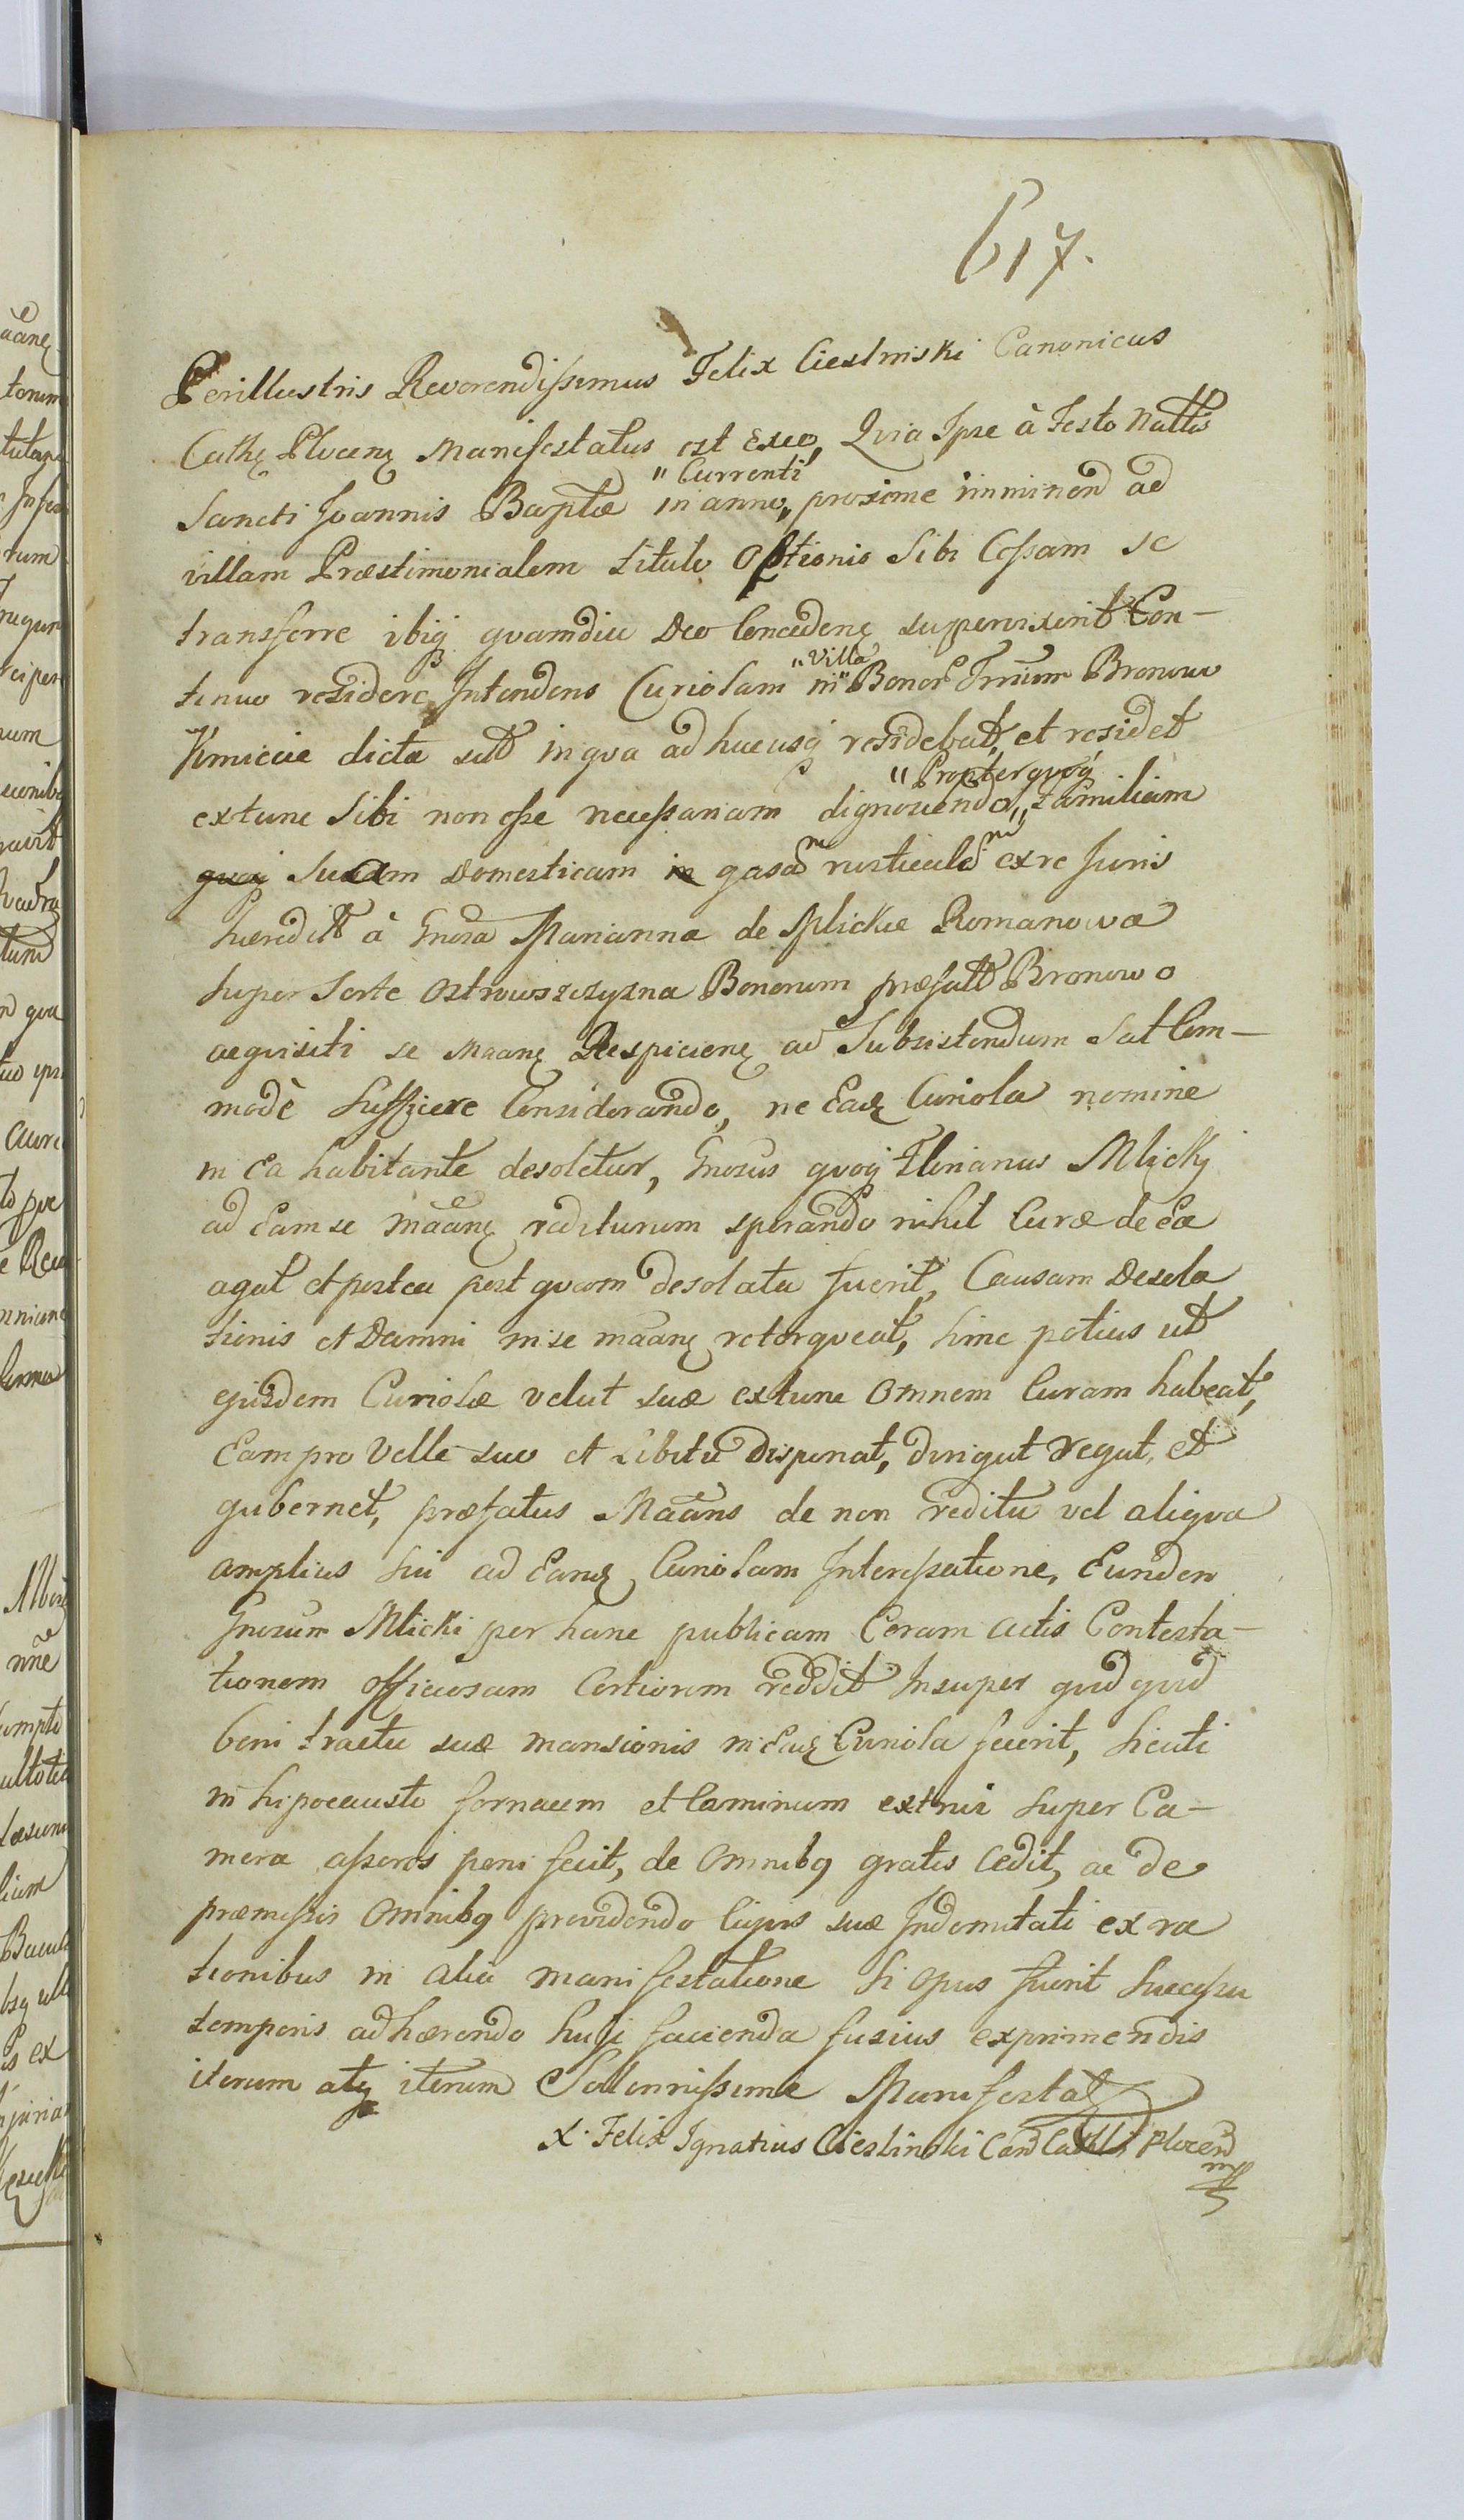 617.
Perillustris Reverendissimus Felix Cieslinski Canonicus
Cath Plocen Manifestatus est Exeo, Qvia Ipse à Festo Nattis
"Currenti
Sancti Joannis Baptæ in anno,, proxime imminen ad
villam Præstimonialem titulo Optionis Sibi Cessam se
transferre ibiq qvamdiu Deo Conceden supervixerit Con-
"Villa
tinuo residere Intendens Curiolam in" Bonor Trrium Bronowo
Kmiecie dicta sitt in qva ad hucusq residebat, et residet
"Propterqvoq
extunc Sibi non esse necessariam dignoscendo,, familiam
qvoq Suam Domesticam in gasa rusticula ex re Juris
hæreditt à Gnosa Marianna de Mlickie Romanowa
Super Sorte Ostrowszczyzna Bonorum præfatt Bronowo
aeqvisiti se Maan Respicien ad Subsistendum Sat Com-
modè Sufficere Considerando, ne Ead Curiola nomine
in Ea habitante desoletur, Gnosus qvoq Florianus Mlicky
ad Eam se maan rediturum sperando nihil Curæ de Ea
agat et postea post qvam desolata fuerit, Causam Desola
tionis et Damni in se maan retorqveat, hinc potius ut
ejusdem Curiolæ velut suæ extunc Omnem Curam habeat,
Eam pro Velle suo et Libitu disponat, dirigat regat, et
gubernet, præfatus Maans de non reditu vel aliqva
amplius sui ad Eand Curiolam Interessatione, Eundem
Gnosum Mlicki per hanc publicam Coram Actis Contesta-
tionem officiosam Certiorem reddit Insuper qvid qvid
boni tractu suæ mansionis in Ead Curiola fecerit, sicuti
in hipocausto fornacem et Caminum extrui super Ca-
mera asseres poni fecit, de Omnibq gratis Cedit, ac de
præmissis Omnibq providendo Cujus suæ Indemnitati ex ra
tionibus in alia manifestatione si Opus fuerit successu
temporis adhærendo husi facienda fusius exprimendis
iterum atq iterum Solennissime Manifestat
X. Felix Ignatius Cieslinski Can Cattli Plocen
mp